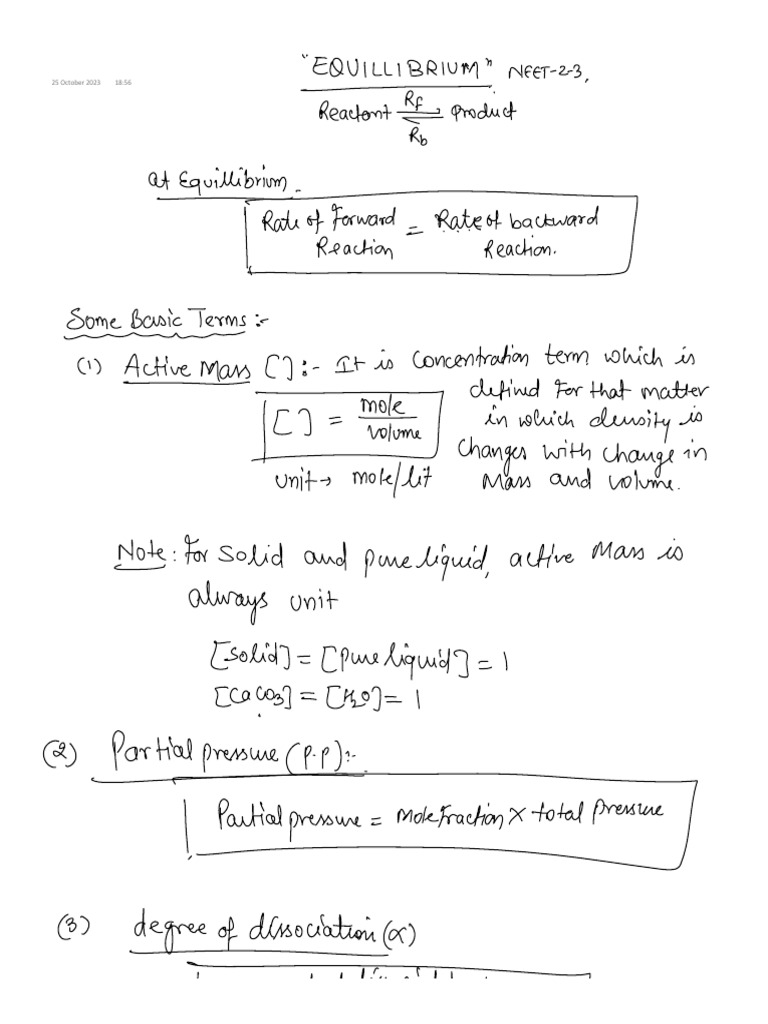 25 October 2023 18:56
"EQUILLIBRIUM" NEET-2-3,
Reactant ⇌ product
Rf
Rb
at Equillibrium.
Rate of Forward Reaction = Rate of backward Reaction.
Some Basic Terms :-
(1) Active Mass [ ] :- It is concentration term which is
defined for that matter
in which density is
changes with change in
Mass and volume.
[ ] = mole / volume
unit → mole/lit
Note : For solid and pure liquid, active Mass is
always unit
[solid] = [pure liquid] = 1
[CaCO3] = [H2O] = 1
(2) Partial pressure (P.P) :-
Partial pressure = Mole Fraction × total pressure
(3) degree of dissociation (α)